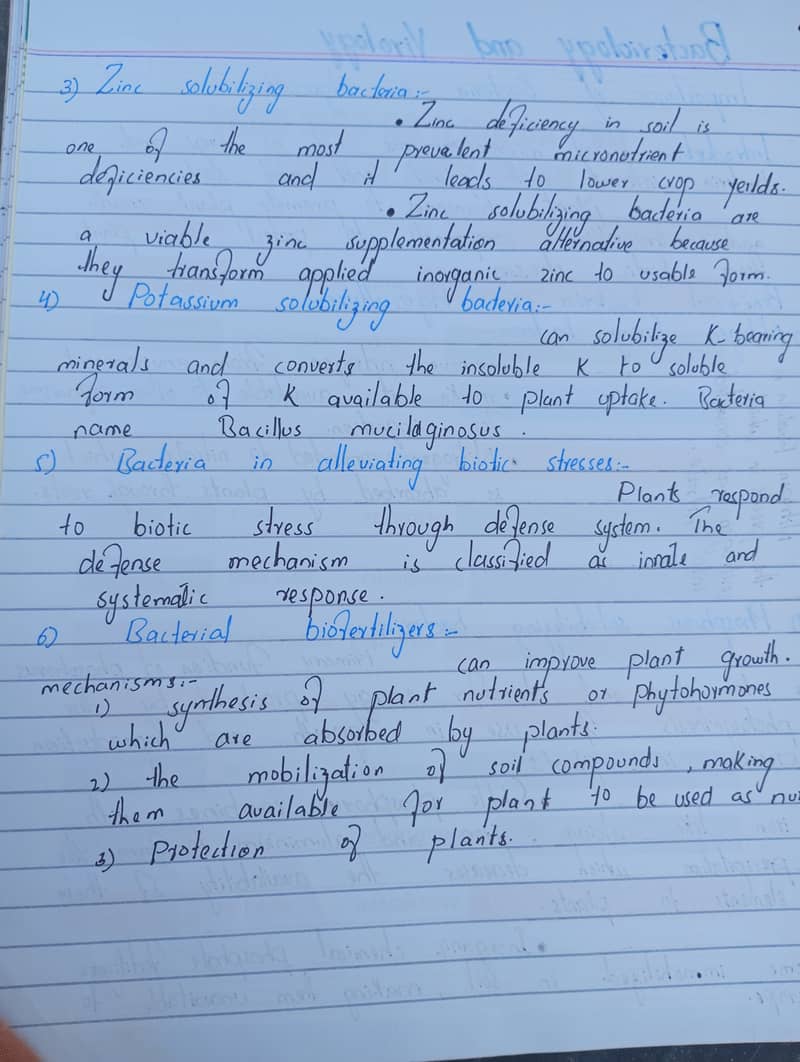 3) Zinc solubilizing bacteria:-
• Zinc deficiency in soil is
one of the most prevalent micronutrient
deficiencies and it leads to lower crop yeilds.
• Zinc solubilizing bacteria are
a viable zinc supplementation alternative because
they transform applied inorganic zinc to usable form.
4) Potassium solubilizing bacteria:-
can solubilize K-bearing
minerals and converts the insoluble K to soluble
form of K available to plant uptake. Bacteria
name Bacillus mucilaginosus.
5) Bacteria in alleviating biotic stresses:-
Plants respond
to biotic stress through defense system. The
defense mechanism is classified as innate and
systematic response.
6) Bacterial biofertilizers:-
can improve plant growth.
mechanisms:-
1) synthesis of plant nutrients or phytohormones
which are absorbed by plants.
2) the mobilization of soil compounds, making
them available for plant to be used as nu
3) Protection of plants.